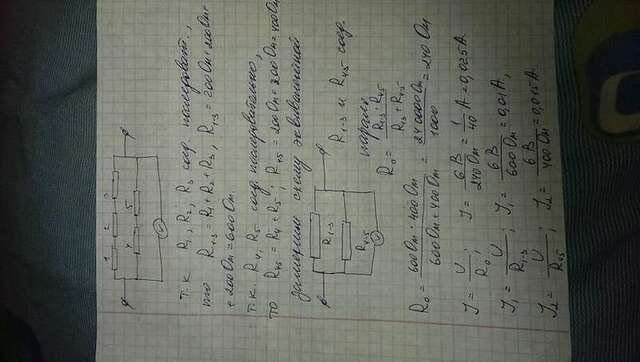 1 2 3
4 5
V
т.к. R1, R2, R3 соед. последоват.,
то R1-3 = R1 + R2 + R3, R1-3 = 200 Ом + 200 Ом +
+ 200 Ом = 600 Ом
т.к. R4, R5 соед. последовательно,
то R45 = R4 + R5; R45 = 200 Ом + 200 Ом = 400 Ом
заменим схему эквивалентной
R1-3
R4-5
V
R1-3 и R45 соед.
паралл.
R0 = R1-3 · R45 / R1-3 + R45
R0 = 600 Ом · 400 Ом / 600 Ом + 400 Ом = 240000 Ом / 1000 = 240 Ом
J = U / R0; J = 6 В / 240 Ом = 1 / 40 А = 0,025 А.
J1 = U / R1-3; J1 = 6 В / 600 Ом = 0,01 А,
J2 = U / R45; J2 = 6 В / 400 Ом = 0,015 А.